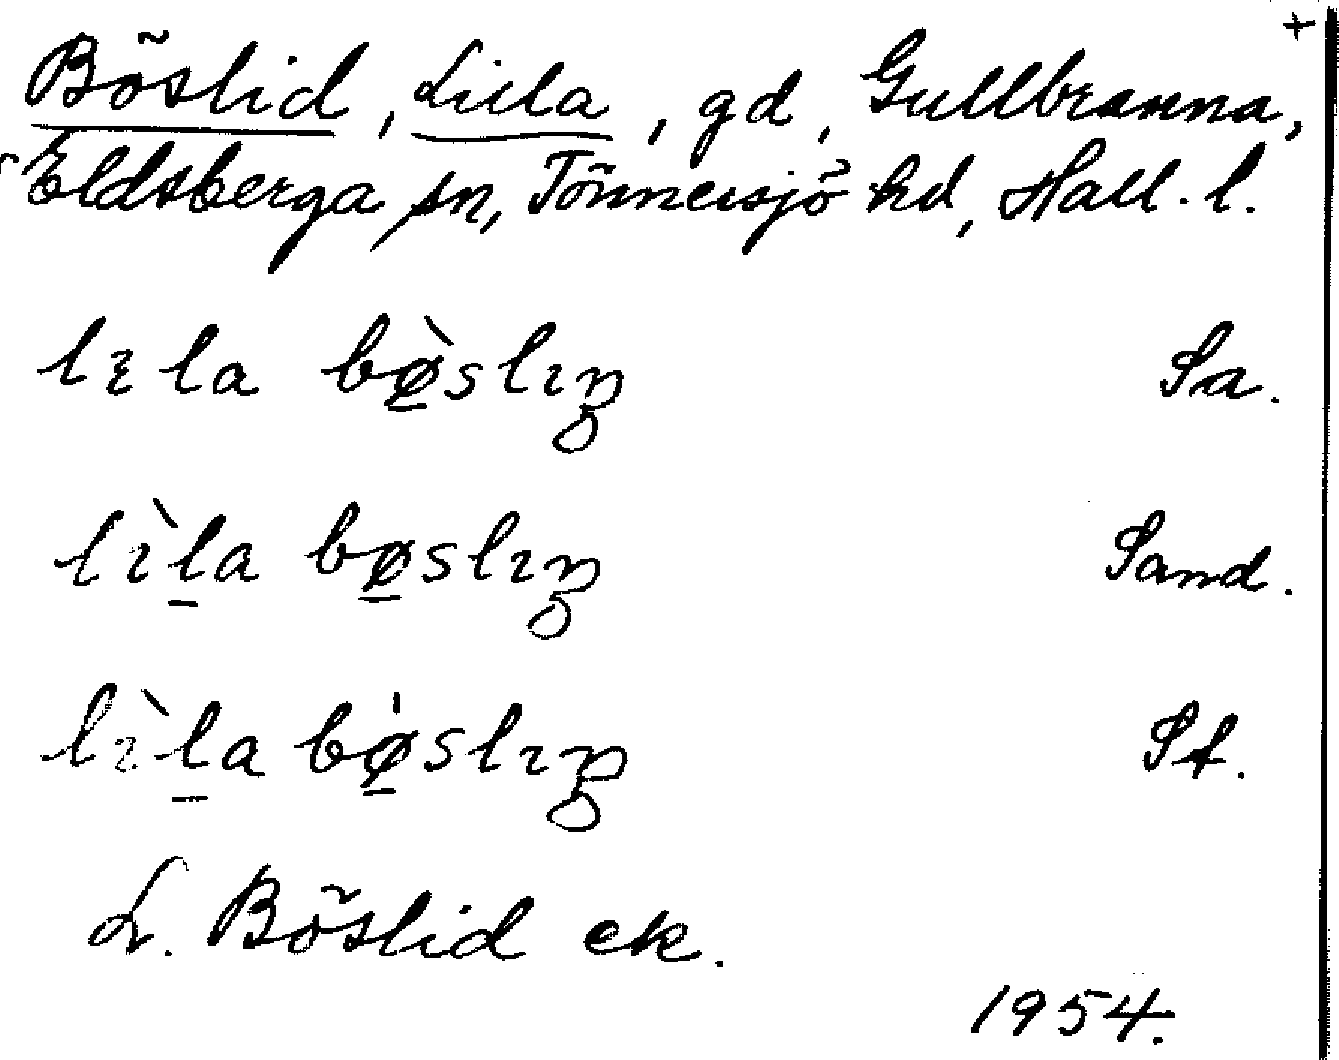 +
Böslid, Lilla, gd, Gullbranna,
Eldsberga sn, Tönnersjö hd, Hall. l.
lɩla bø̠̀slɩŋ Sa.
lɩ̀l̠a bø̠slɩŋ Sand.
lɩ̀l̠a bø̠̍slɩŋ St.
L. Böslid ek.
1954.